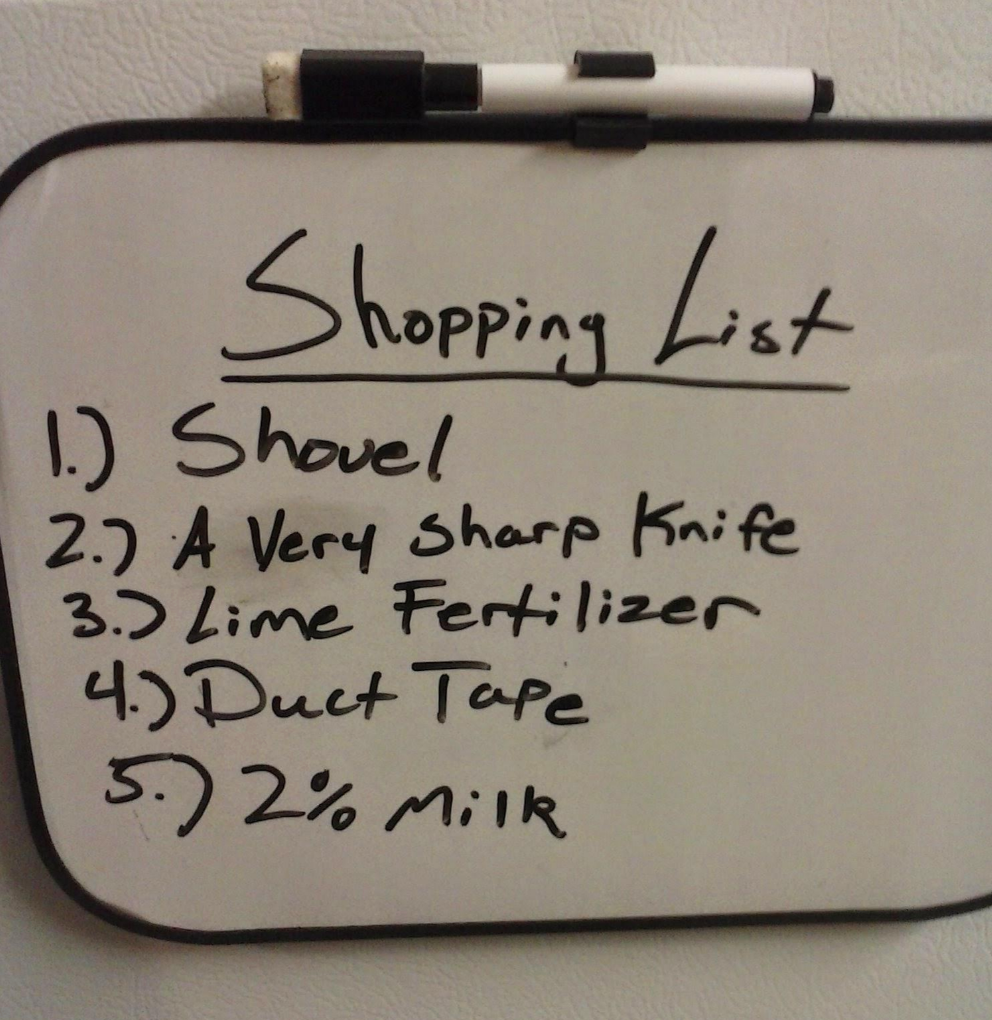 Shopping List
1.) Shovel
2.) A Very Sharp Knife
3.) Lime Fertilizer
4.) Duct Tape
5.) 2% Milk